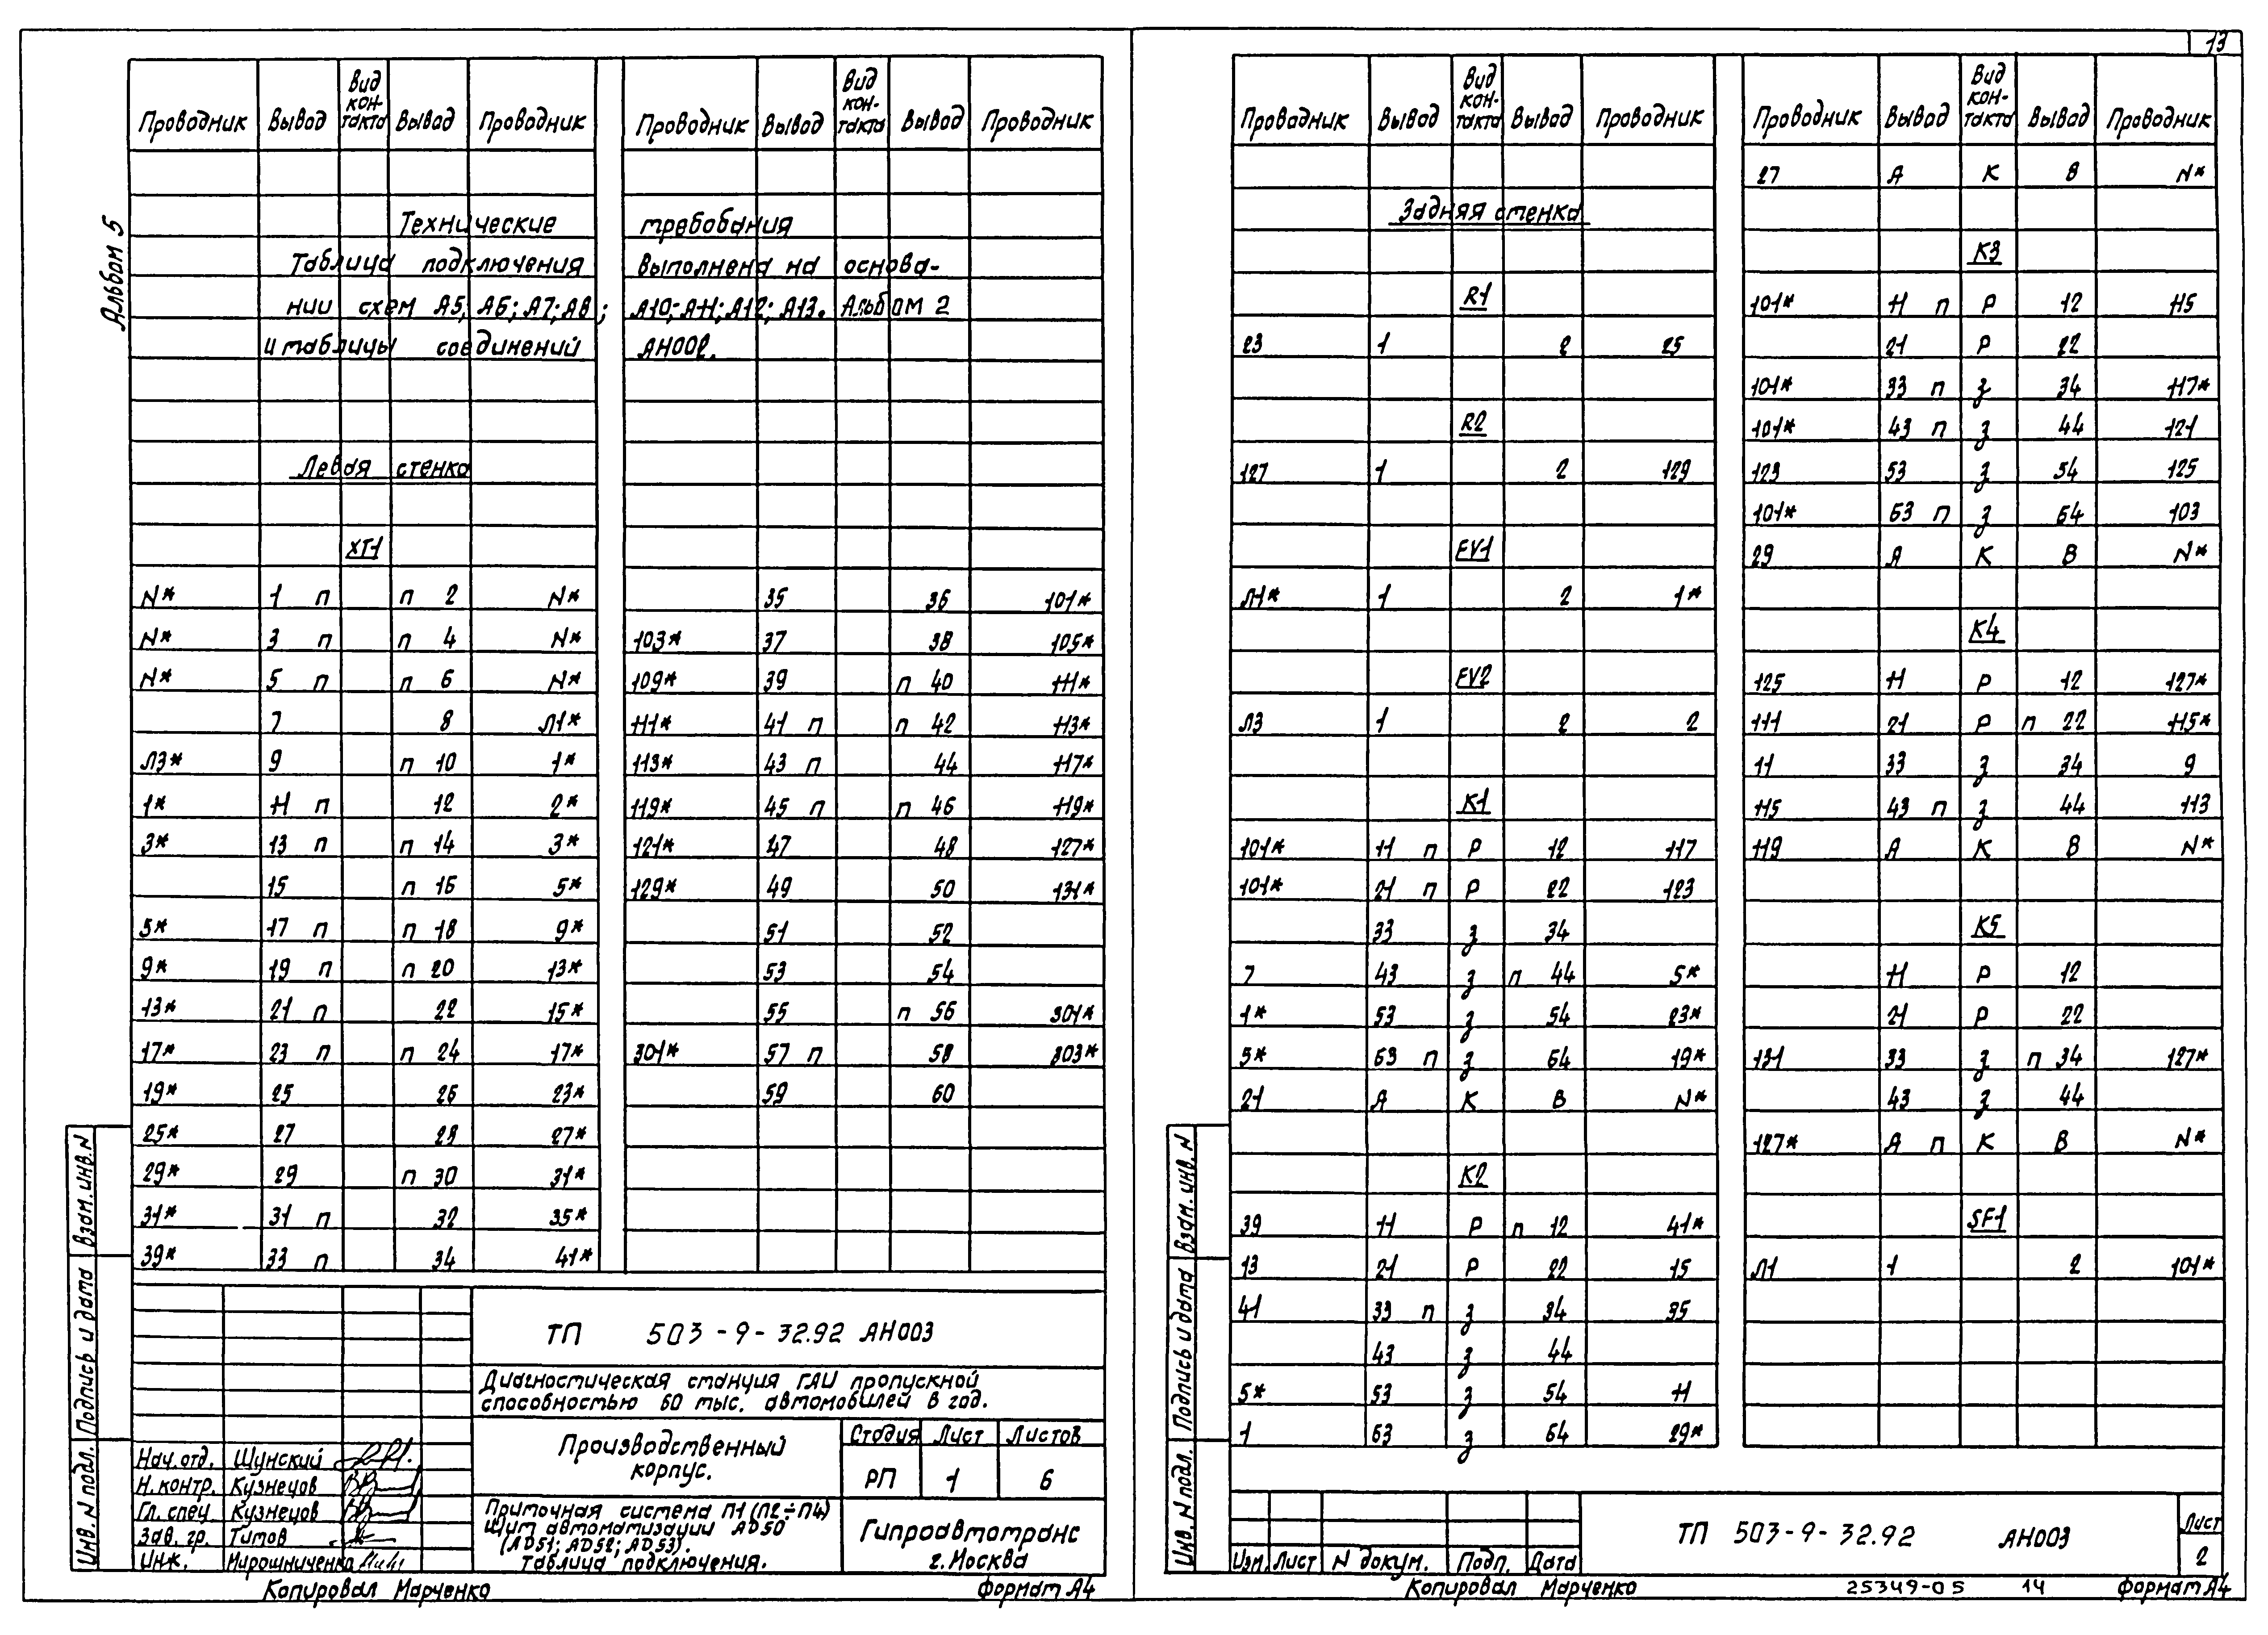 Альбом 5
Проводник Вывод Вид кон-такта Вывод Проводник Проводник Вывод Вид кон-такта Вывод Проводник
Технические требования
Таблица подключения выполнена на основа-
нии схем А5; А6; А7; А8; А10; А11; А12; А13. Альбом 2
и таблицы соединений АН002.
Левая стенка
XT1
N* 1 п п 2 N* 35 36 101*
N* 3 п п 4 N* 103* 37 38 105*
N* 5 п п 6 N* 109* 39 п 40 111*
7 8 Л1* 111* 41 п п 42 113*
Л3* 9 п 10 1* 113* 43 п 44 117*
1* 11 п 12 2* 119* 45 п п 46 119*
3* 13 п п 14 3* 121* 47 48 127*
15 п 16 5* 129* 49 50 131*
5* 17 п п 18 9* 51 52
9* 19 п п 20 13* 53 54
13* 21 п 22 15* 55 п 56 301*
17* 23 п п 24 17* 301* 57 п 58 303*
19* 25 26 23* 59 60
25* 27 28 27*
29* 29 п 30 31*
31* 31 п 32 35*
39* 33 п 34 41*
ТП 503-9-32.92 АН003
Диагностическая станция ГАИ пропускной
способностью 60 тыс. автомобилей в год.
Производственный
корпус.
Стадия Лист Листов
РП 1 6
Нач. отд. Шунский
Н. контр. Кузнецов
Гл. спец Кузнецов
Зав. гр. Титов
Инж. Мирошниченко
Приточная система П1 (П2÷П4)
Щит автоматизации AD50
(AD51; AD52; AD53).
Таблица подключения.
Гипроавтотранс
г. Москва
Инв. N подл. Подпись и дата Взам. инв. N
Копировал Марченко Формат А4
13
Проводник Вывод Вид кон-такта Вывод Проводник
Задняя стенка
R1
23 1 2 25
R2
127 1 2 129
FV1
Л1* 1 2 1*
FV2
Л3 1 2 2
K1
101* 11 п Р 12 117
101* 21 п Р 22 123
33 З 34
7 43 З п 44 5*
1* 53 З 54 23*
5* 63 п З 64 19*
21 А К В N*
K2
39 11 Р п 12 41*
13 21 Р 22 15
41 33 п З 34 35
43 З 44
5* 53 З 54 11
1 63 З 64 29*
Проводник Вывод Вид кон-такта Вывод Проводник
27 А К В N*
K3
101* 11 п Р 12 115
21 Р 22
101* 33 п З 34 117*
101* 43 п З 44 121
123 53 З 54 125
101* 63 п З 64 103
29 А К В N*
K4
125 11 Р 12 127*
111 21 Р п 22 115*
11 33 З 34 9
115 43 п З 44 113
119 А К В N*
K5
11 Р 12
21 Р 22
131 33 З п 34 127*
43 З 44
127* А п К В N*
SF1
Л1 1 2 101*
Инв. N подл. Подпись и дата Взам. инв. N
Изм. Лист N докум. Подп. Дата
ТП 503-9-32.92 АН003
Лист
2
Копировал Марченко 25349-05 14 Формат А4